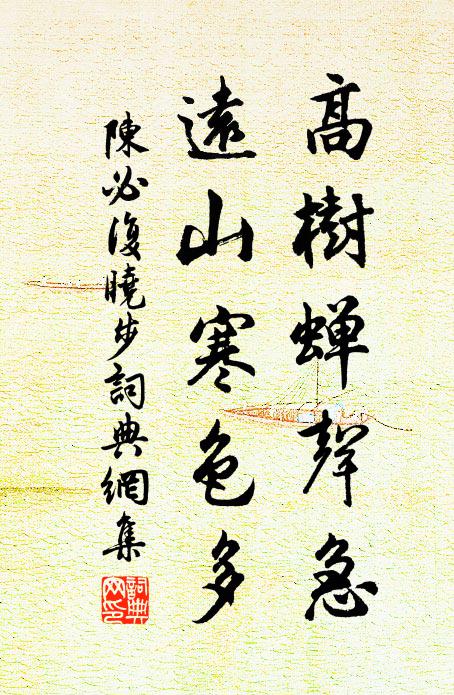 高樹蝉聲急
遠山寒色多
陳必復曉步詞典網集
詞典網印